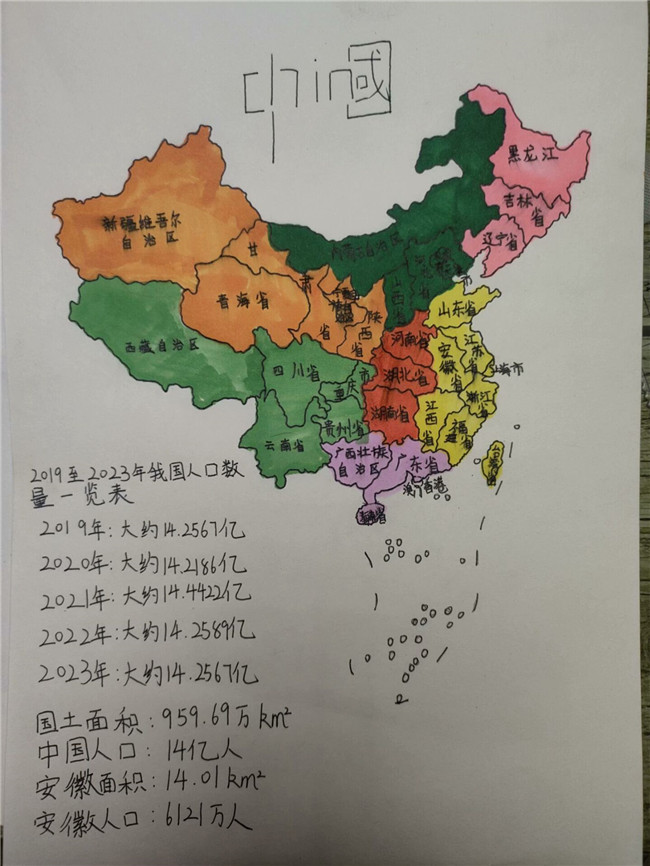 chin國
黑龙江
吉林省
辽宁省
内蒙古自治区
新疆维吾尔
自治区
甘肃省
青海省
陕西省
山西省
河北省
山东省
西藏自治区
四川省
重庆市
河南省
湖北省
湖南省
安徽省
江苏省
上海市
浙江省
江西省
福建
云南省
贵州省
广西壮族
自治区
广东省
澳门香港
台湾省
海南省
2019至2023年我国人口数
量一览表
2019年:大约14.2567亿
2020年:大约14.2186亿
2021年:大约14.4422亿
2022年:大约14.2589亿
2023年:大约14.2567亿
国土面积:959.69万km²
中国人口:14亿人
安徽面积:14.01km²
安徽人口:6121万人